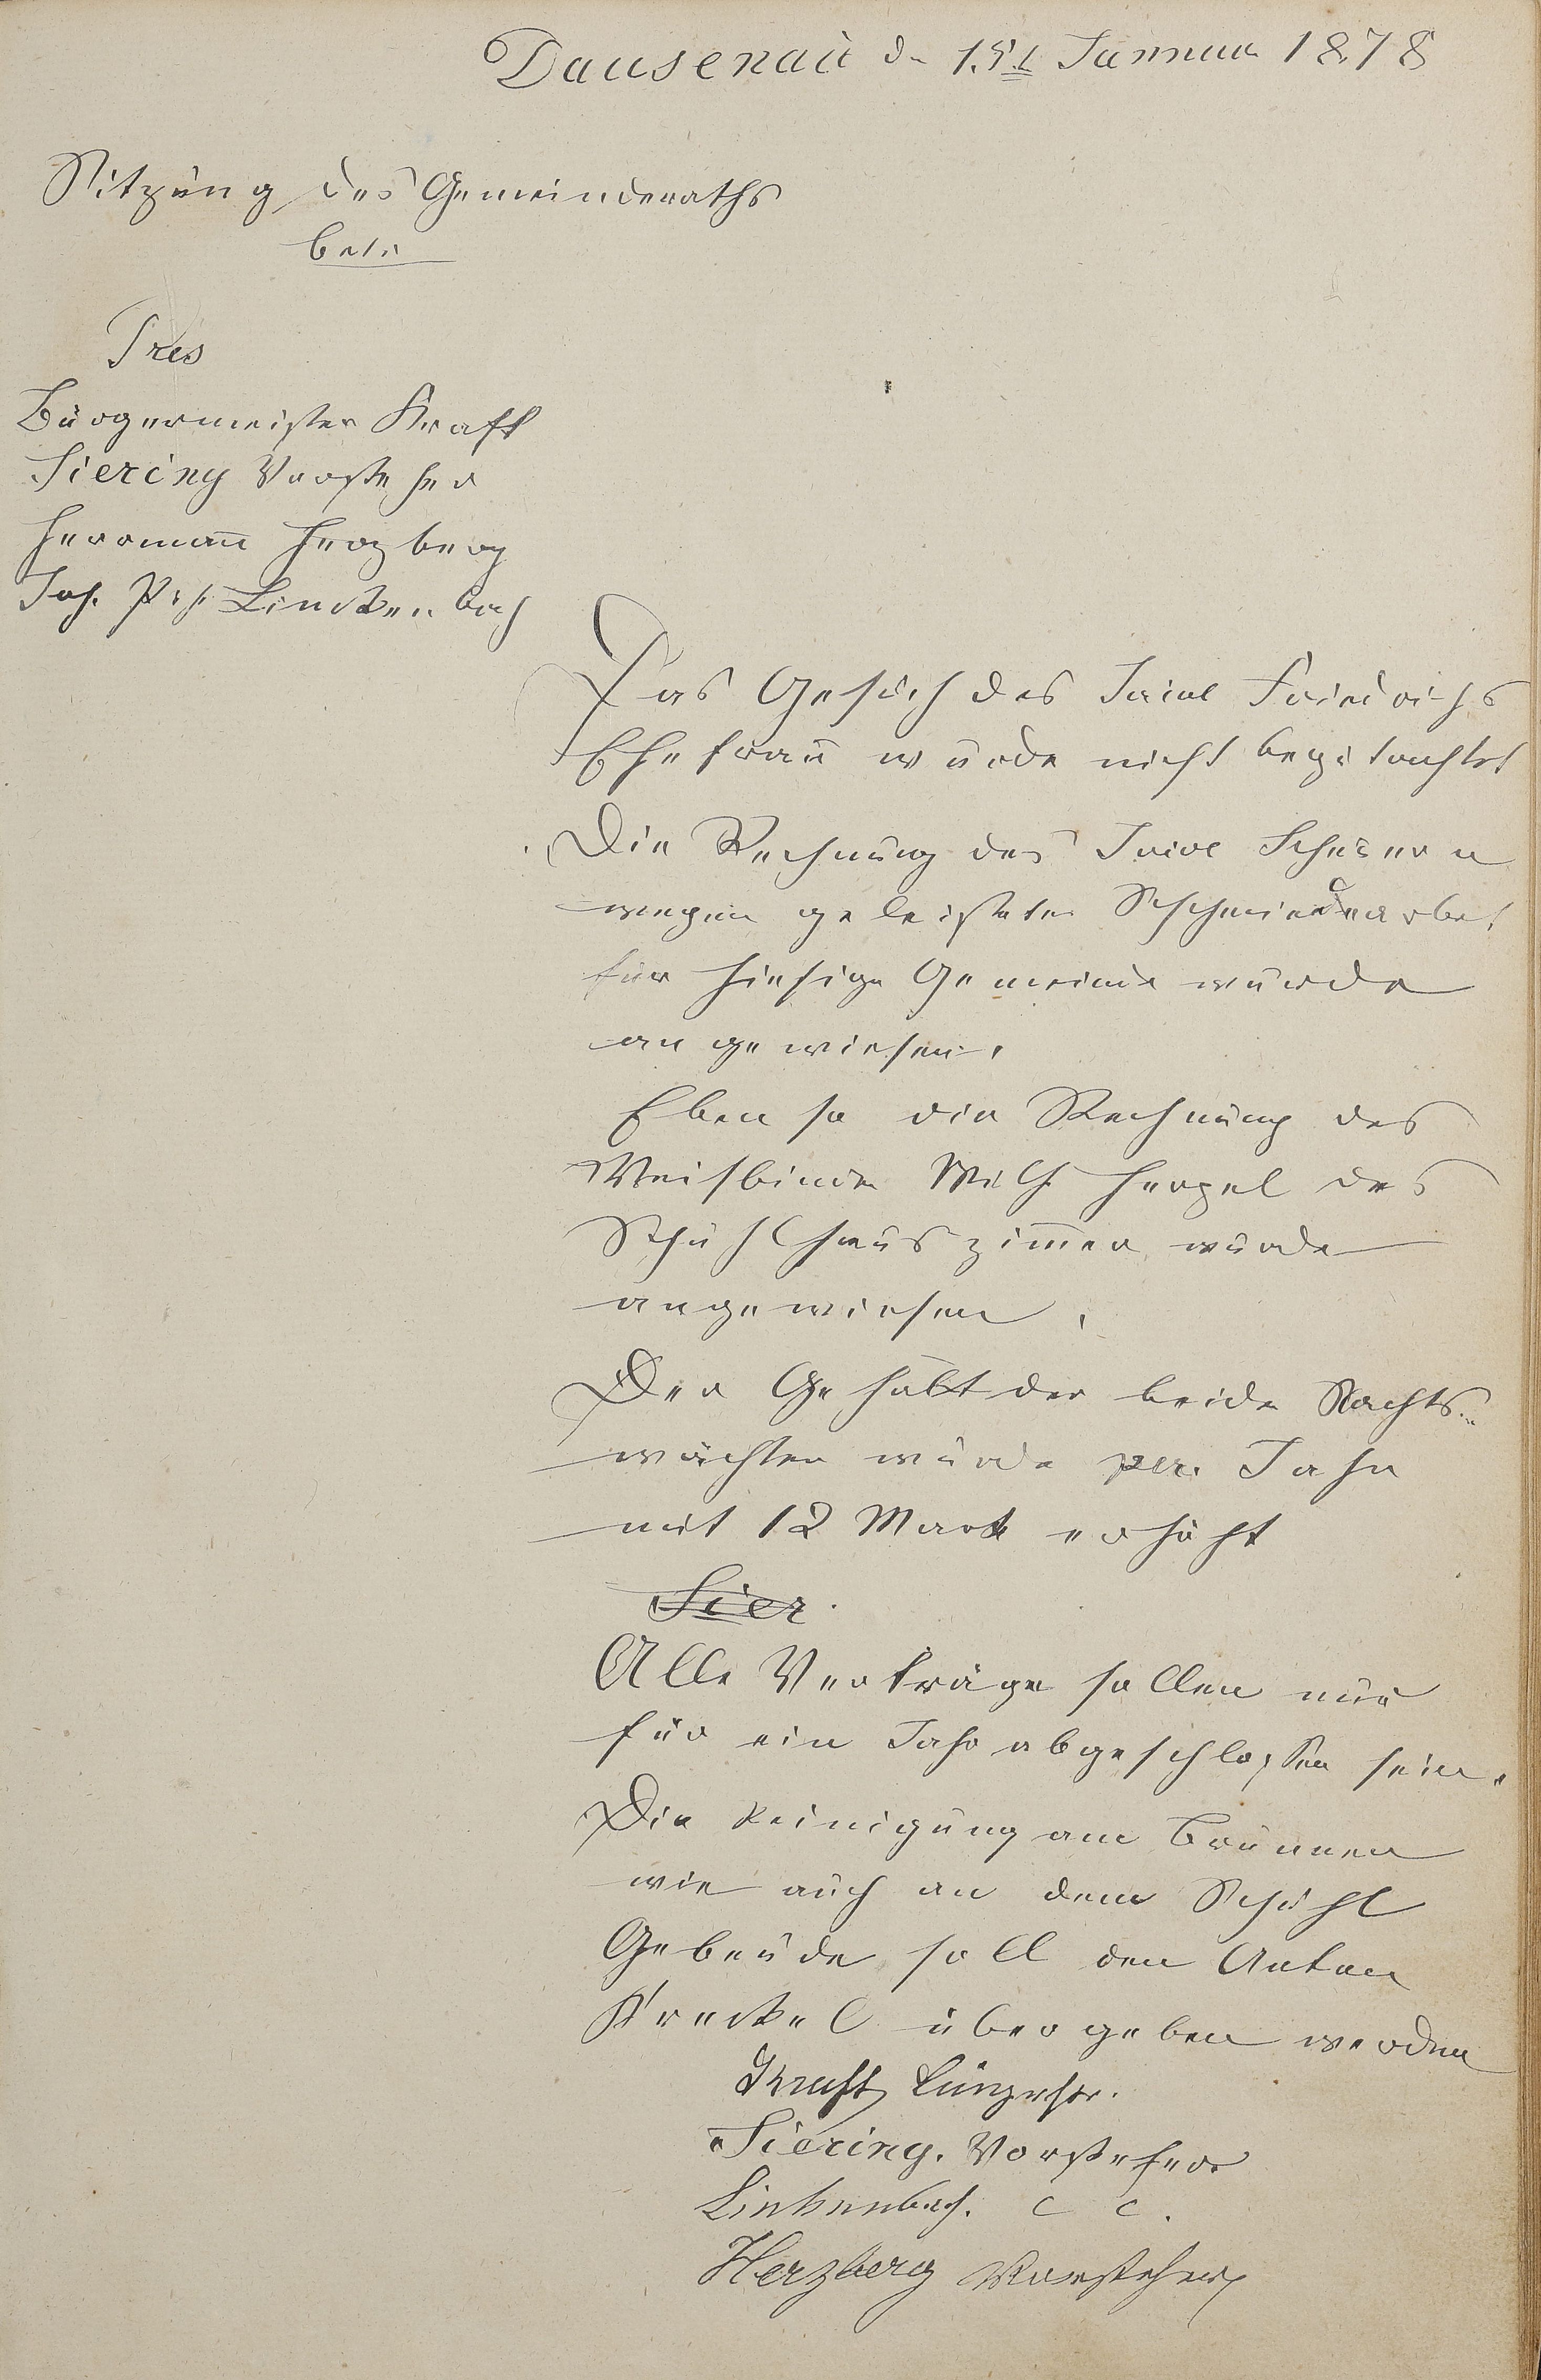 Dausenau d. 15t Januar 1878
Sitzung des Gemeinderaths
betr.
Pres
Bürgermeister Kraft
Siering Vorsteher
Herrmann Herzberg
Joh. Ph. Linckenbach
Das Gesuch des Friedrichs
Ehefrau wurde nicht begutachtet
Die Rechnung des
wegen geleisteter Schmiedearbeit
für hiesige Gemeinde wurde
angewiesen.
Eben so die Rechnung des
Weisbinder Wilh Hergel des
Schuhlhauszimmer wurde
angewiesen.
Der Gehalt der beide Nachts-
wächter wurde per. Jahr
mit 12 Mark erhöht
Sier
Alle Verträge sollen nur
für ein Jahr abgeschlossen sein.
Die Reinigung am Brunnen
wie auch an dem Schuhl
Gebeude soll den Anton
Kreckel übergeben werden
Kraft Bürgrstr.
Siering. Vorsteher
Linkenbach. c c.
Herzberg Vorsteher